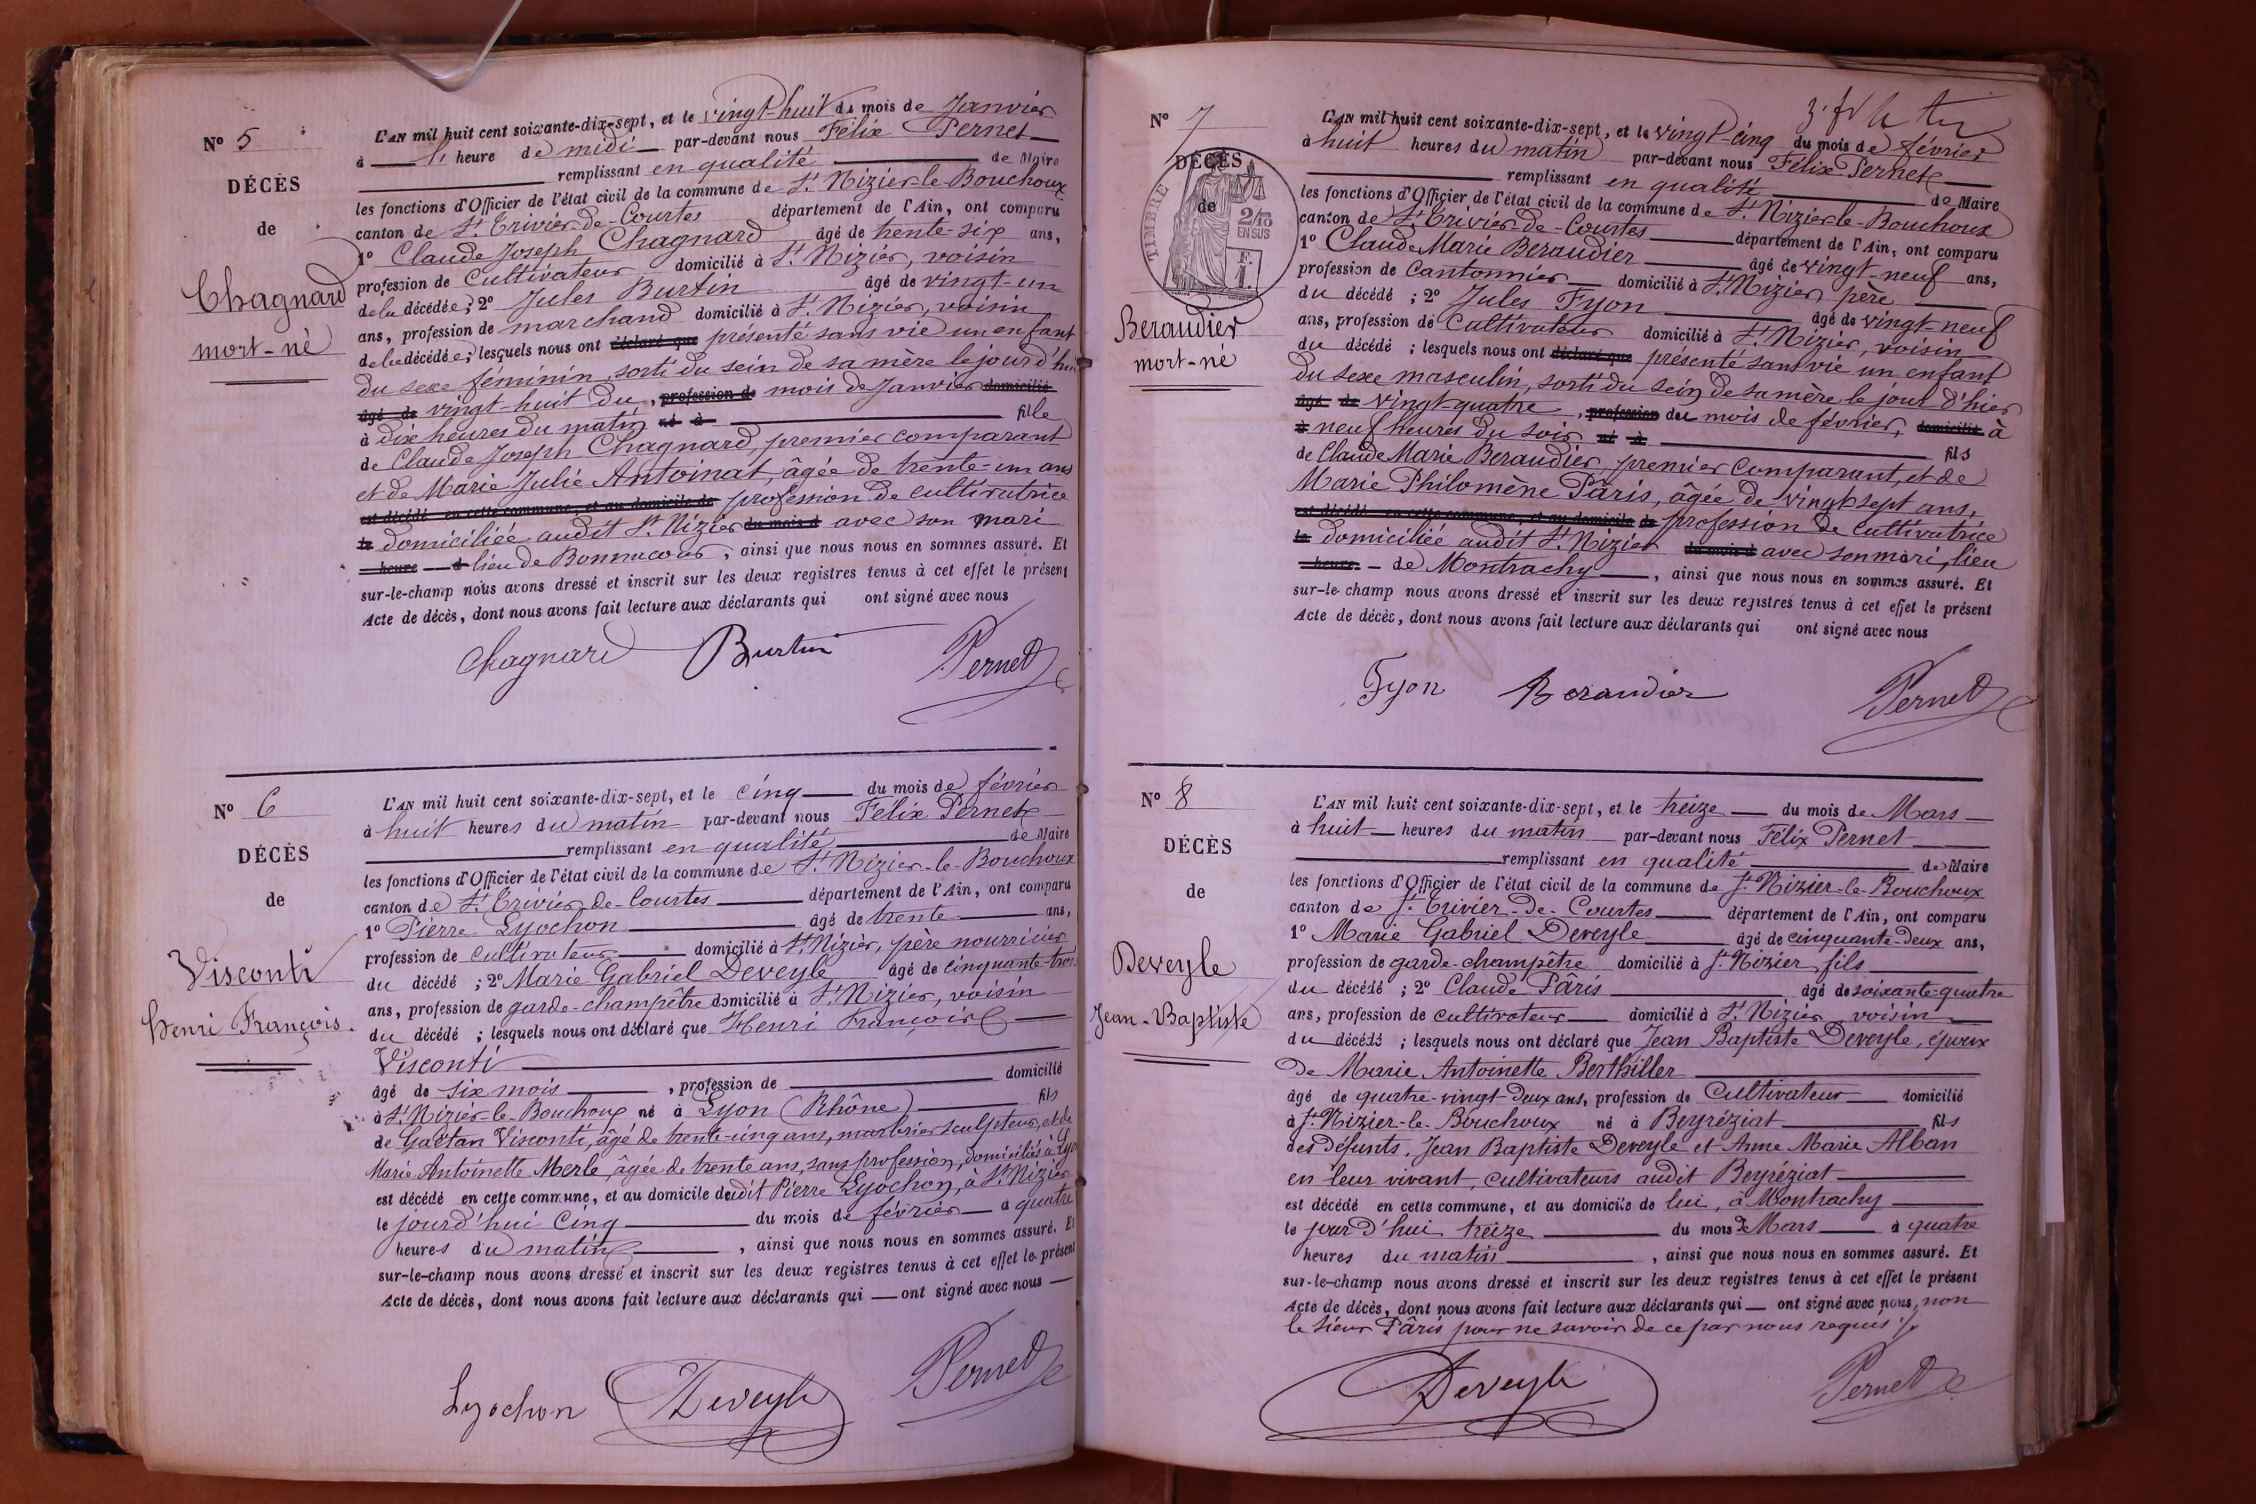 Nº 5
DÉCÈS
de
Chagnard
mort-né
L'AN mil huit cent soixante-dix-sept, et le vingt-huit du mois de Janvier
à heure de midi par-devant nous Félix Pernet
remplissant en qualité de Maire
les fonctions d'Officier de l'état civil de la commune de St Nizier-le-Bouchoux
canton de St Trivier-de-Courtes département de l'Ain, ont comparu
1º Claude Joseph Chagnard âgé de trente-six ans,
profession de Cultivateur domicilié à St Nizier, voisin
de la décédée; 2º Jules Burtin âgé de vingt-un
ans, profession de marchand domicilié à St Nizier, voisin
de la décédée; lesquels nous ont déclaré que présenté sans vie un enfant
du sexe féminin, sorti du sein de sa mère le jourd'hui
âgé de vingt-huit du, profession de mois de Janvier domicilié
à dix heures du matin né à fille
de Claude Joseph Chagnard, premier comparant
et de Marie Julie Antoinat, âgée de trente-un ans
est décédé en cette commune, et au domicile de profession de cultivatrice
le domiciliée audit St Nizier du mois d avec son mari
heure à lieu de Bonnucour, ainsi que nous nous en sommes assuré. Et
sur-le-champ nous avons dressé et inscrit sur les deux registres tenus à cet effet le présent
Acte de décès, dont nous avons fait lecture aux déclarants qui ont signé avec nous
Chagnard Burtin Pernet
Nº 6
DÉCÈS
de
Visconti
Henri François.
L'AN mil huit cent soixante-dix-sept, et le cinq du mois de février
à huit heures du matin par-devant nous Félix Pernet
remplissant en qualité de Maire
les fonctions d'Officier de l'état civil de la commune de St Nizier-le-Bouchoux
canton de St Trivier-de-Courtes département de l'Ain, ont comparu
1º Pierre Lyochon âgé de trente ans,
profession de cultivateur domicilié à St Nizier, père nourricier
du décédé ; 2º Marie Gabriel Deveyle âgé de cinquante-trois
ans, profession de garde-champêtre domicilié à St Nizier, voisin
du décédé ; lesquels nous ont déclaré que Henri François
Visconti
âgé de six mois, profession de domicilié
à St Nizier-le-Bouchoux né à Lyon (Rhône) fils
de Gaëtan Visconti, âgé de trente-cinq ans, marbrier sculpteur, et de
Marie Antoinette Merle, âgée de trente ans, sans profession, domiciliés à Lyon
est décédé en cette commune, et au domicile dudit Pierre Lyochon, à St Nizier
le jourd'hui cinq du mois de février à quatre
heures du matin, ainsi que nous nous en sommes assuré. Et
sur-le-champ nous avons dressé et inscrit sur les deux registres tenus à cet effet le présent
Acte de décès, dont nous avons fait lecture aux déclarants qui ont signé avec nous
Lyochon Deveyle Pernet
Nº 7
DÉCÈS
de
TIMBRE
2/10
EN SUS
F.
1.
Beraudier
mort-né
L'AN mil huit cent soixante-dix-sept, et le vingt-cinq du mois de février
à huit heures du matin par-devant nous Félix Pernet
remplissant en qualité de Maire
les fonctions d'Officier de l'état civil de la commune de St Nizier-le-Bouchoux
canton de St Trivier-de-Courtes département de l'Ain, ont comparu
1º Claude Marie Beraudier âgé de vingt-neuf ans,
profession de Cantonnier domicilié à St Nizier, père
du décédé ; 2º Jules Fyon âgé de vingt-neuf
ans, profession de Cultivateur domicilié à St Nizier, voisin
du décédé ; lesquels nous ont déclaré que présenté sans vie un enfant
du sexe masculin, sorti du sein de sa mère le jour d'hier
âgé de vingt-quatre, profession du mois de février, domicilié à
à neuf heures du soir né à fils
de Claude Marie Beraudier, premier comparant, et de
Marie Philomène Pâris, âgée de vingt sept ans,
est décédé en cette commune, et au domicile de profession de Cultivatrice
le domiciliée audit St Nizier du mois d avec son mari, lieu
heures de Montrachy, ainsi que nous nous en sommes assuré. Et
sur-le-champ nous avons dressé et inscrit sur les deux registres tenus à cet effet le présent
Acte de décès, dont nous avons fait lecture aux déclarants qui ont signé avec nous
Fyon Beraudier Pernet
Nº 8
DÉCÈS
de
Deveyle
Jean-Baptiste
L'AN mil huit cent soixante-dix-sept, et le treize du mois de Mars
à huit heures du matin par-devant nous Félix Pernet
remplissant en qualité de Maire
les fonctions d'Officier de l'état civil de la commune de St Nizier-le-Bouchoux
canton de St Trivier-de-Courtes département de l'Ain, ont comparu
1º Marie Gabriel Deveyle âgé de cinquante-deux ans,
profession de garde-champêtre domicilié à St Nizier, fils
du décédé ; 2º Claude Pâris âgé de soixante-quatre
ans, profession de cultivateur domicilié à St Nizier voisin
du décédé ; lesquels nous ont déclaré que Jean Baptiste Deveyle, époux
de Marie Antoinette Berthiller
âgé de quatre-vingt-deux ans, profession de Cultivateur domicilié
à St Nizier-le-Bouchoux né à Beyréziat fils
des défunts, Jean Baptiste Deveyle et Anne Marie Alban
en leur vivant, cultivateurs audit Beyréziat
est décédé en cette commune, et au domicile de lui, à Montrachy
le jour d'hui treize du mois de Mars à quatre
heures du matin, ainsi que nous nous en sommes assuré. Et
sur-le-champ nous avons dressé et inscrit sur les deux registres tenus à cet effet le présent
Acte de décès, dont nous avons fait lecture aux déclarants qui ont signé avec nous, non
le sieur Pâris pour ne savoir de ce par nous requis
Deveyle Pernet